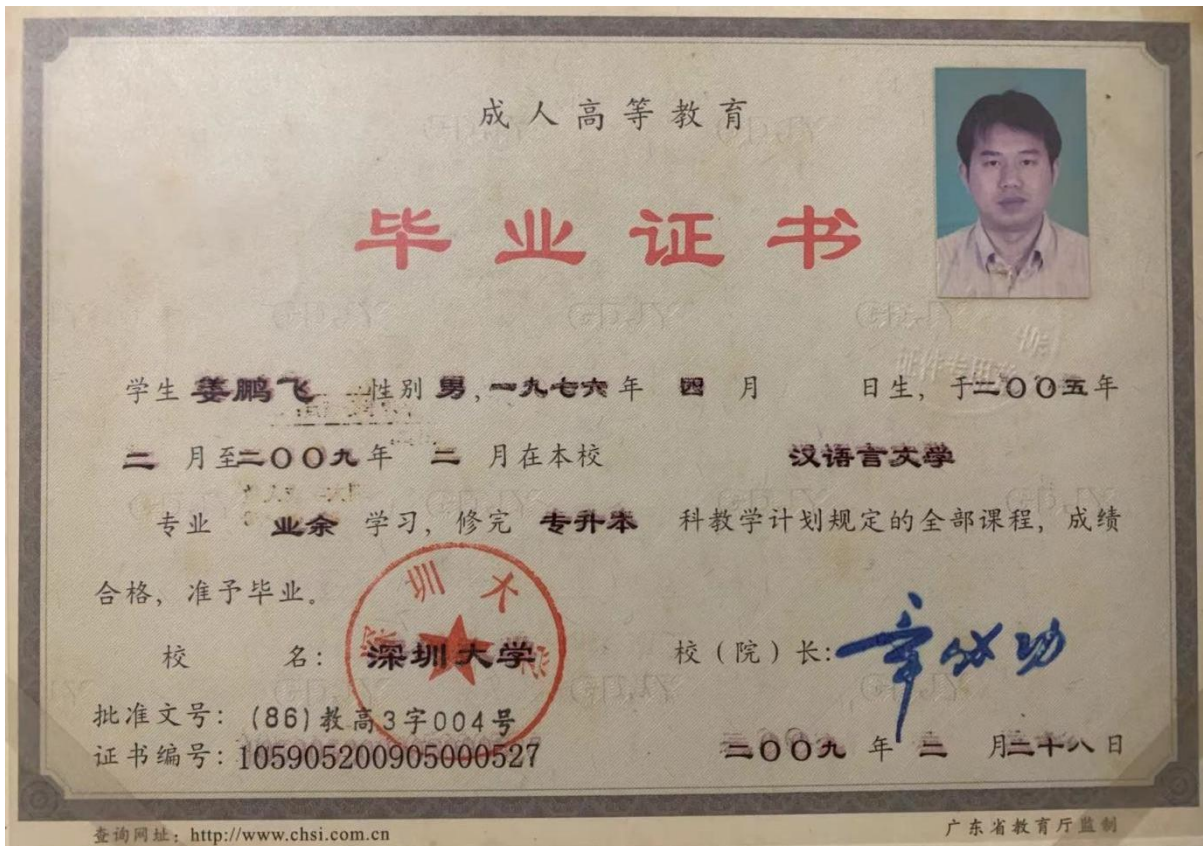 成人高等教育
毕业证书
证件专用章
学生 姜鹏飞 性别 男，一九七六年 四 月 日生，于二〇〇五年
二 月至二〇〇九年 二 月在本校 汉语言文学
专业 业余 学习，修完 专升本 科教学计划规定的全部课程，成绩
合格，准予毕业。
校 名： 深圳大学 校（院）长：章必功
批准文号：(86)教高3字004号
证书编号：105905200905000527 二〇〇九 年 二 月二十八日
查询网址：http://www.chsi.com.cn 广东省教育厅监制